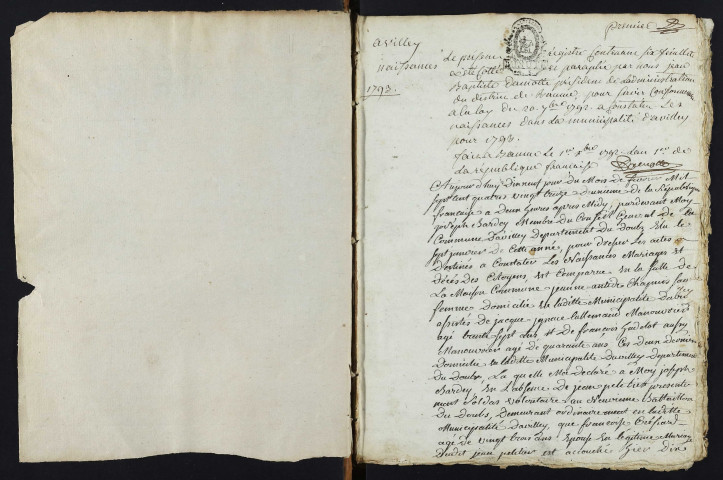 premier
avilley
naissances
1793.
Le présent registre contenant six feuillets
a été cotté et paraphé par nous jean
Baptiste président de l'administration
du district de Baume, pour servir conformément
a la loy du 20. 7bre 1792. a constater les
naissances dans la municipalité d'avilley
pour 1793.
fait a Baume le 1er Xbre 1792. l'an 1er de
la république française
Aujourd'huy Dixneuf jour Du Mois De fevrier Mil
sept Cent quatre vingt treize Deuxieme De la République
françoise a Deux heures après Midy, pardevant Moy
joseph Bardey Membre Du Conseil General De la
Commune D'avilley Departement Du Doubs Elu le
sept janvier De Cette année, pour dresser les actes
Destinés a Constater Les Naissances Mariages et
Décès Des Citoyens, Est Comparue En la salle De
La Maison Commune jeanne antide
femme Domiciliée En laditte Municipalité
assistés De jacque ignace lallemand Manouvrier
agé trente sept ans Et De françois
Manouvrier agé De quarante ans, Ces Deux Derniers
Domiciliés En laditte Municipalité D'avilley Departement
Du Doubs, La quelle M'a Declaré a Moy joseph
Bardey En L'absence De jean petitet presente
ment soldat volontaire au Neuvieme Battaillon
Du Doubs, Demeurant ordinairement En laditte
Municipalité D'avilley, que francoise
agée De vingt trois ans Epouse En légitime Mariage
Dudit jean petitet est accouchée hier Dix